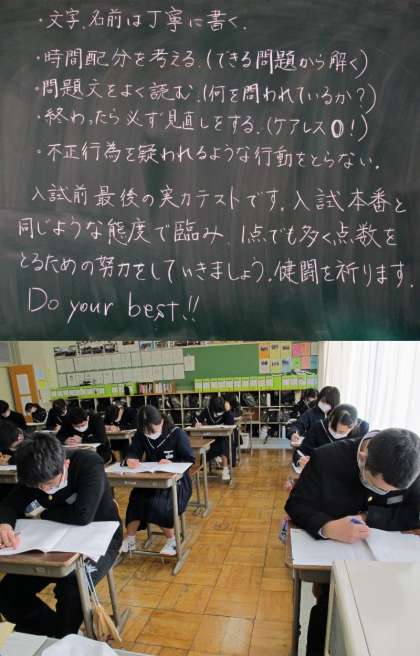 ・文字、名前は丁寧に書く.
・時間配分を考える.(できる問題から解く)
・問題文をよく読む.(何を問われているか?)
・終わったら必ず見直しをする.(ケアレス0!)
・不正行為を疑われるような行動をとらない.
入試前最後の実力テストです.入試本番と
同じような態度で臨み、1点でも多く点数を
とるための努力をしていきましょう.健闘を祈ります.
Do your best!!